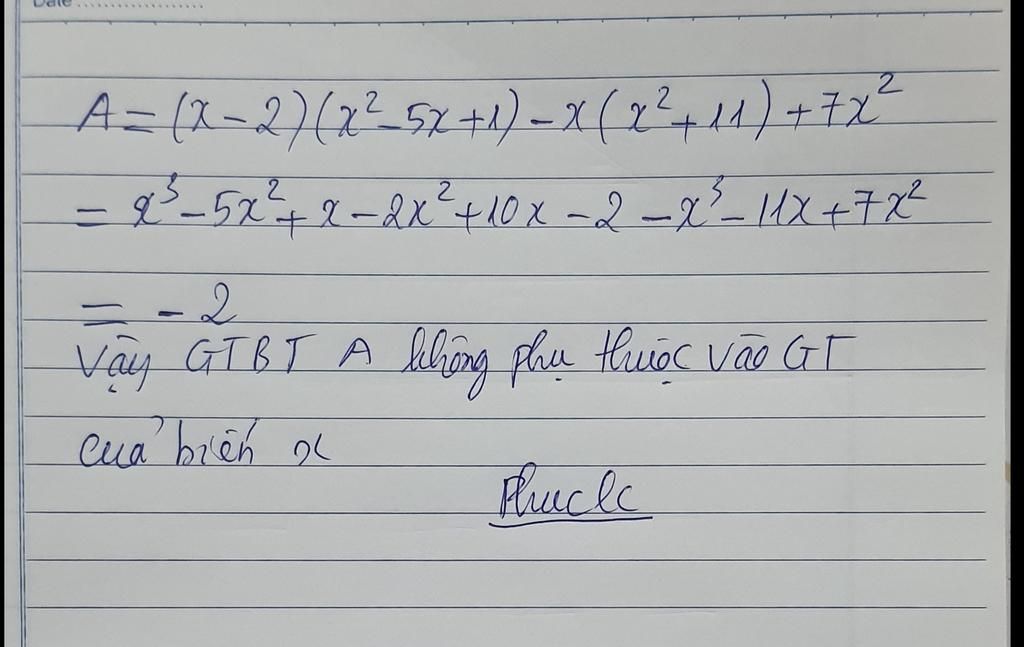 Date
A = (x - 2)(x² - 5x + 1) - x(x² + 11) + 7x²
= x³ - 5x² + x - 2x² + 10x - 2 - x³ - 11x + 7x²
= - 2
Vậy GTBT A không phụ thuộc vào GT
của biến x